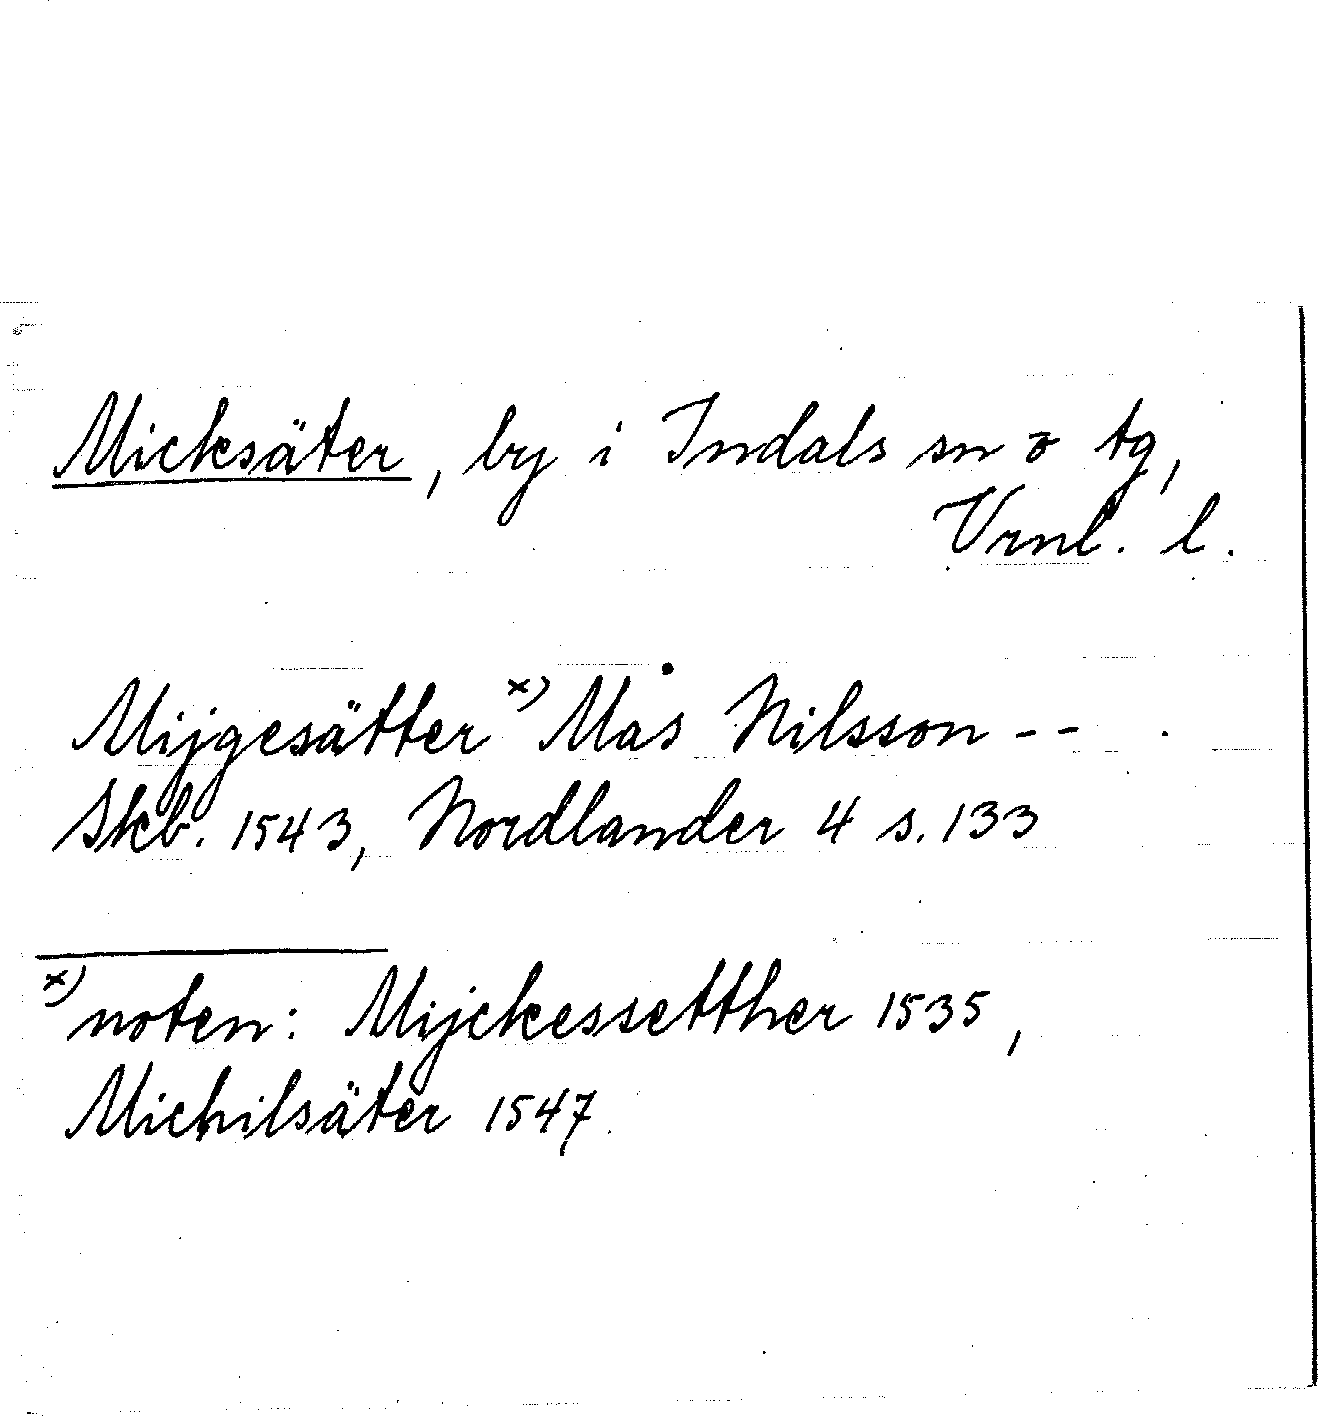 Micksäter, by i Indals sn o tg,
Vrnl. l.
Mijgesätter x) Mas Nilsson - -
Skb. 1543, Nordlander 4 s. 133
x) noten: Mijckessetther 1535,
Michilsäter 1547